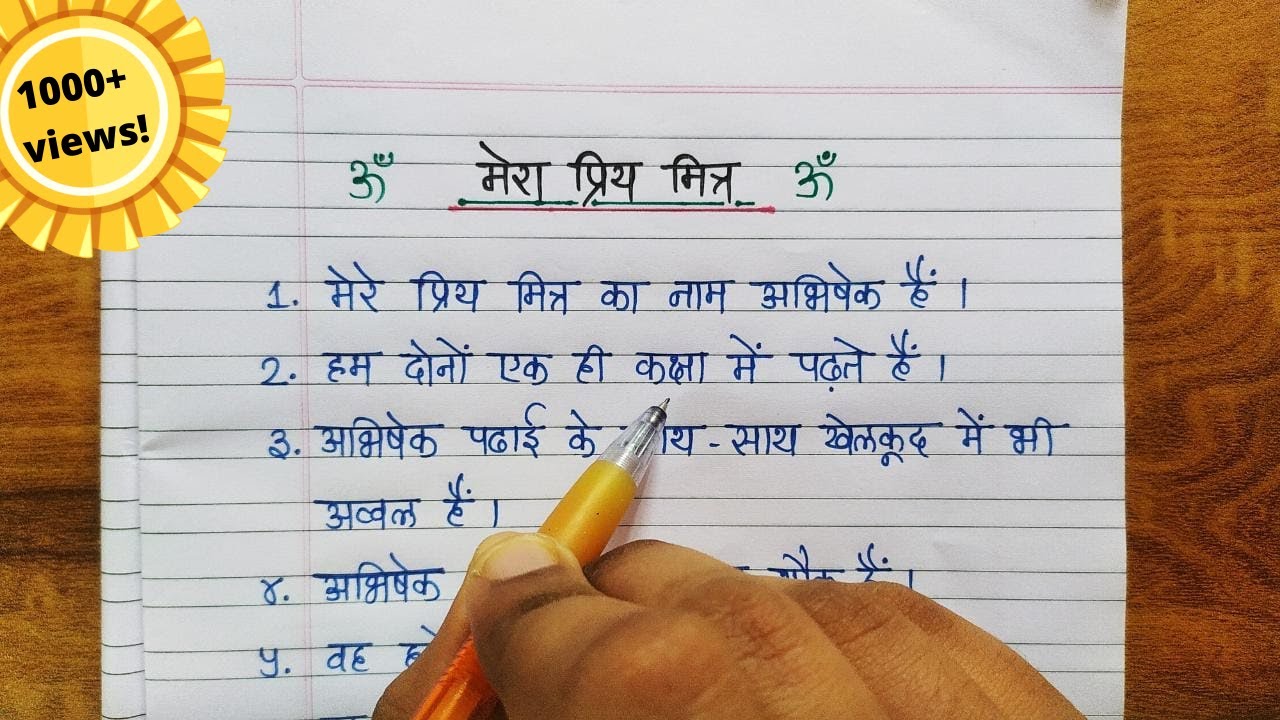 1000+
views!
ॐ मेरा प्रिय मित्र ॐ
1. मेरे प्रिय मित्र का नाम अभिषेक हैं।
2. हम दोनों एक ही कक्षा में पढ़ते हैं।
३. अभिषेक पढाई के साथ-साथ खेलकूद में भी
अव्वल हैं।
४. अभिषेक हैं।
५. वह